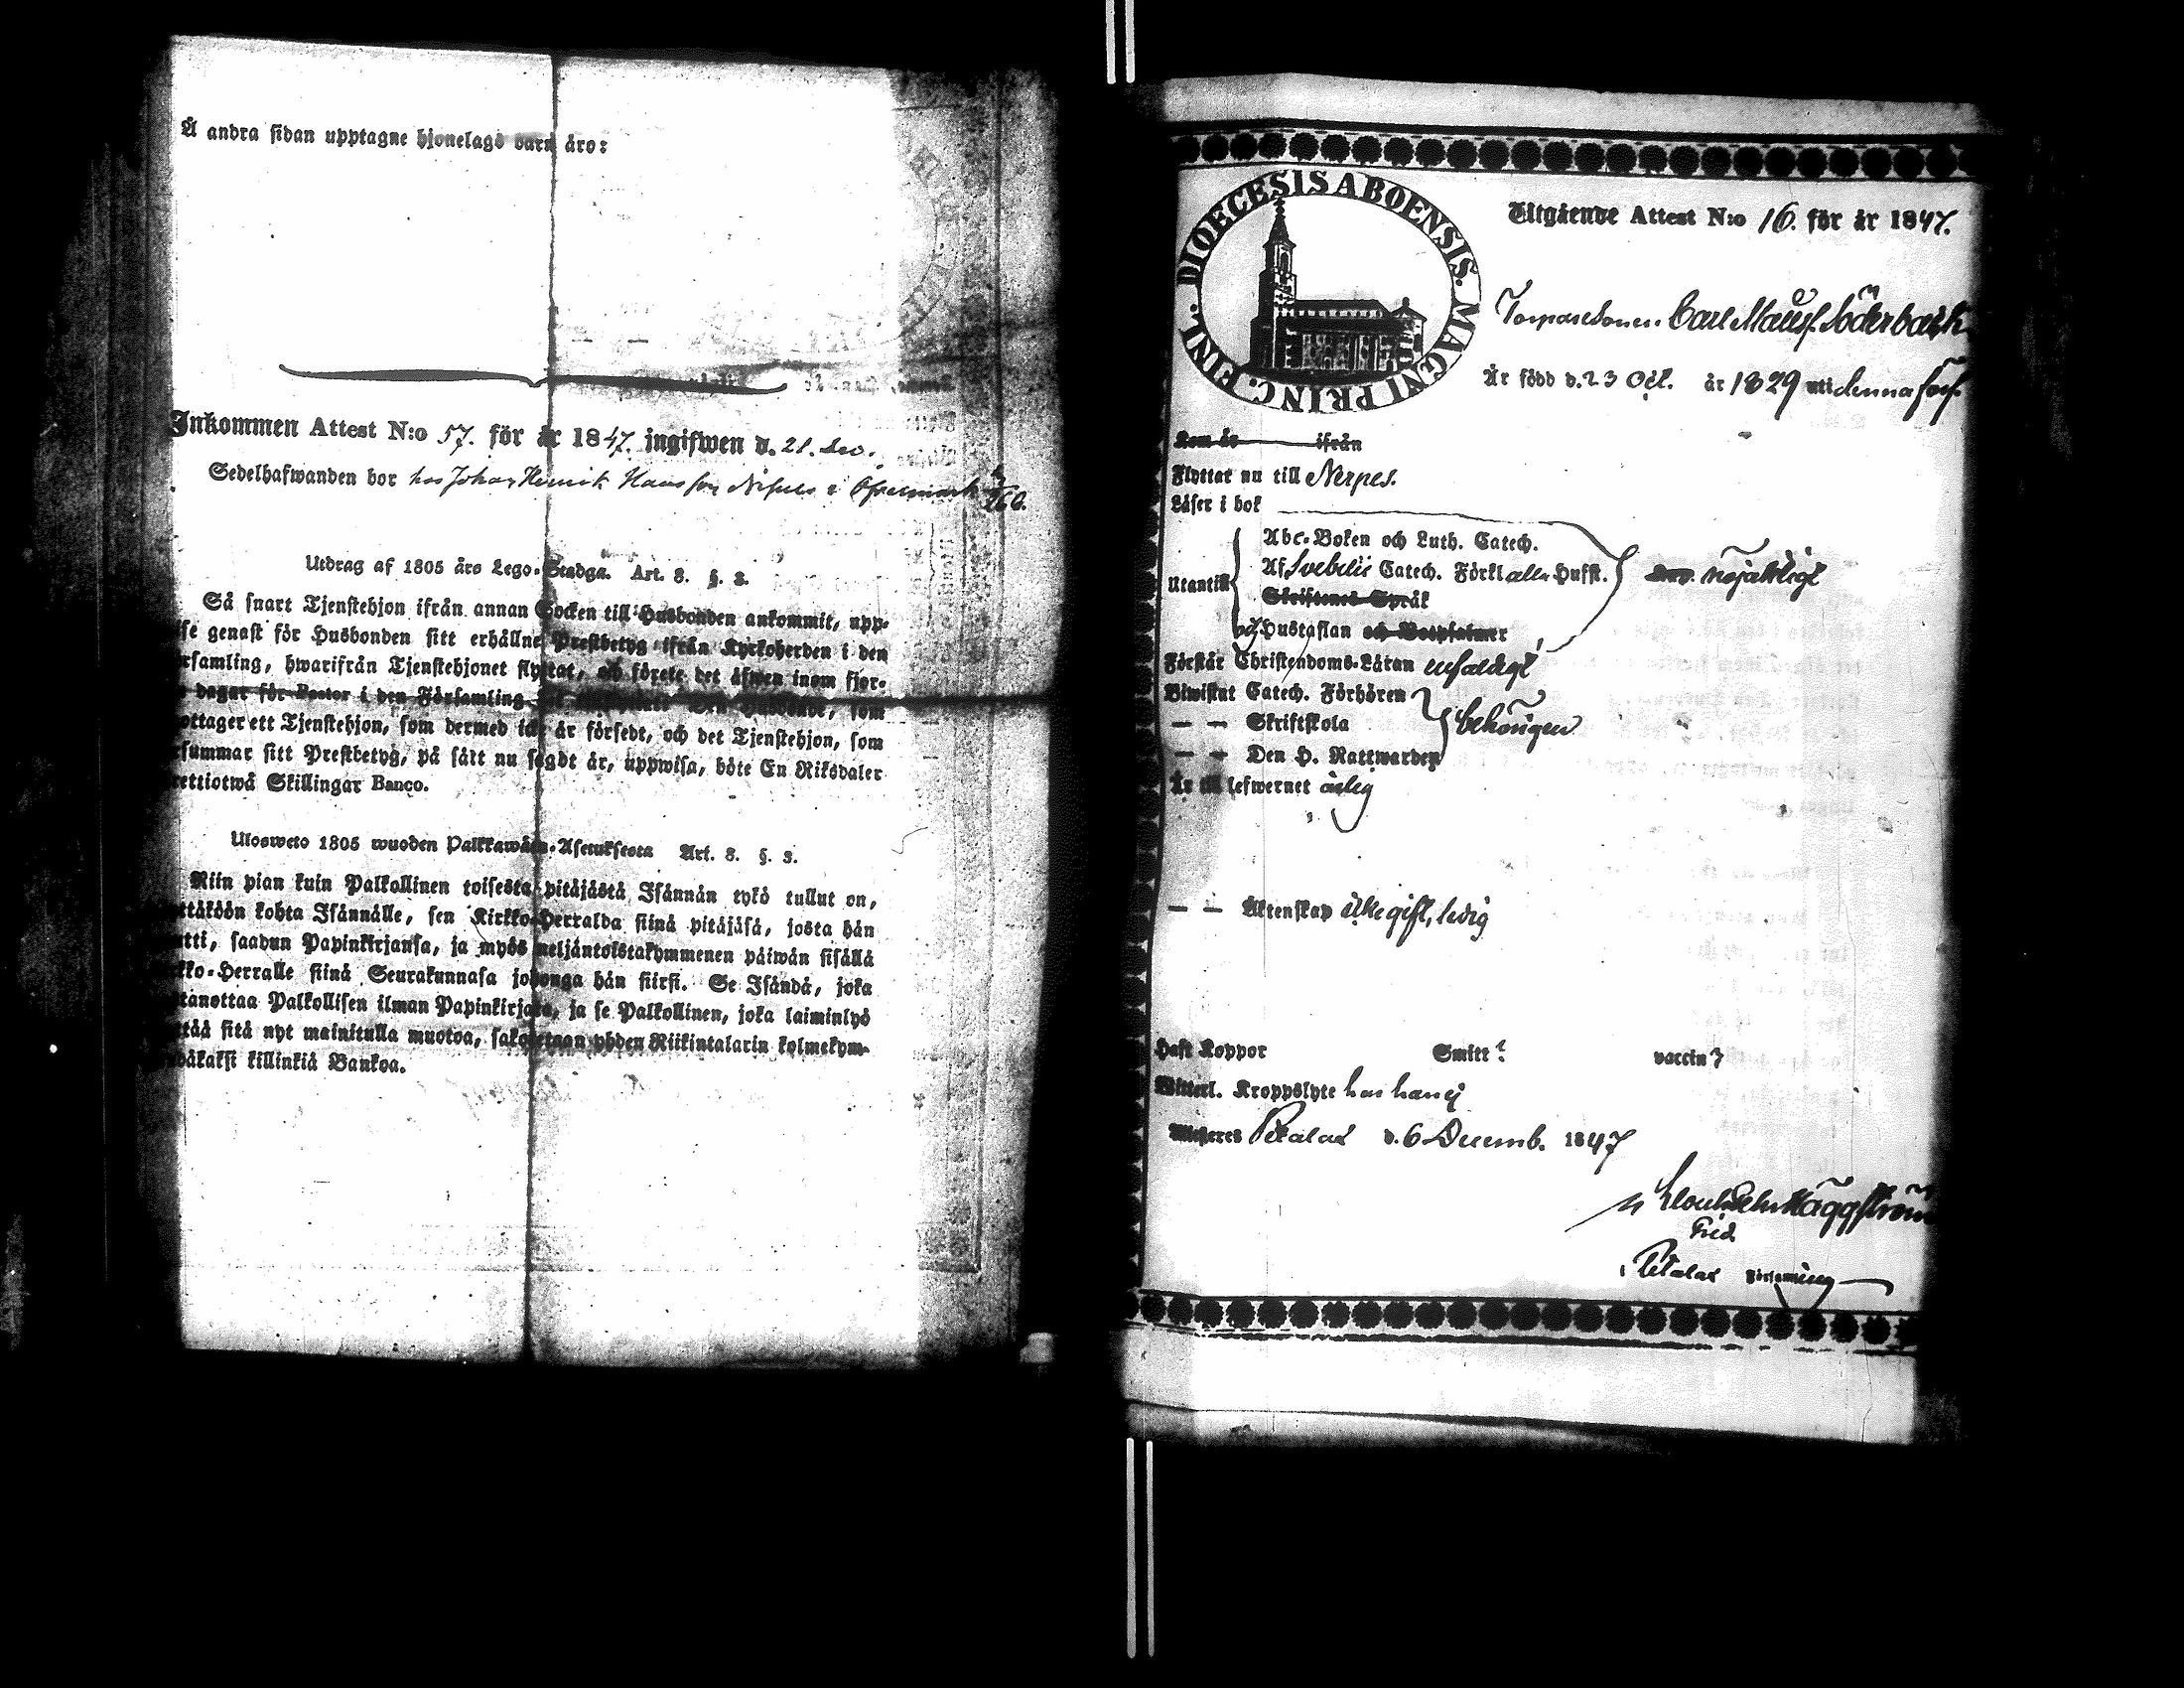 Å andra sidan upptagne hjonelags barn äro:
Inkommen Attest N:o 57. för år 1847. ingifwen d. 21. Dec.
Sedelhafwanden bor hos Johan Henrik Hansson i
Utdrag af 1805 års Lego-Stadga. Art. 8. §. 3.
Så snart Tjenstehjon ifrån annan Socken till Husbonden ankommit, upp-
genast för Husbonden sitt erhållne Prestbetyg ifrån Kyrkoherden i den
rsamling, hwarifrån Tjenstehjonet flyttat, och förete det äfwen inom fjor-
dagar för Pastor i den Församling Den Husbonde, som
ottager ett Tjenstehjon, som dermed icke är försedt, och det Tjenstehjon, som
rsummar sitt Prestbetyg, på sätt nu sagdt är, uppwisa, böte En Riksdaler
rettiotwå Skillingar Banco.
Ulosweto 1805 wuoden Palkkawäen-Asetuksesta Art. 8. §. 3.
Niin pian kuin Palkollinen toisesta pitäjästä Isännän tykö tullut on,
ttäköön kohta Isännälle, sen Kirkko-Herralda siinä pitäjäsä, josta hän
utti, saadun Papinkirjansa, ja myös neljäntoistakymmenen päiwän sisällä
kko-Herralle siinä Seurakunnasa johonga hän siirsi. Se Isändä, joka
tanottaa Palkollisen ilman Papinkirjata, ja se Palkollinen, joka laiminlyö
ttää sitä nyt mainitulla muotoa, sakotetaan yhden Riikintalarin kolmekym-
däkaksi killinkiä Bankoa.
DIOECESIS ABOENSIS. MAGNI PRINC. FINL.
Utgående Attest N:o 16. för år 1847.
Torparesonen Carl Söderback
Är född d. 23 Oct. år 1829 uti denna förs.
Kom år ifrån
Flyttar nu till Nerpes.
Läser i bok
Abc-Boken och Luth. Catech.
Utantill Af Svebilii Catech. Förkl alla Hufst. nöjaktligt
Skriftenes Språk
och Hustaflan och Botpsalmer
Förstår Christendoms-Läran enfaldigt
Biwistat Catech. Förhören
— — Skriftskola behörigen
— — Den H. Nattwarden
Är till lefwernet ärlig
— — Äktenskap icke gift, ledig
Haft Koppor Smitt? vaccin?
Witterl. Kroppslyte har han ej
Attesteres Petalax d. 6 Decemb. 1847
Häggström
i Petalax Församling